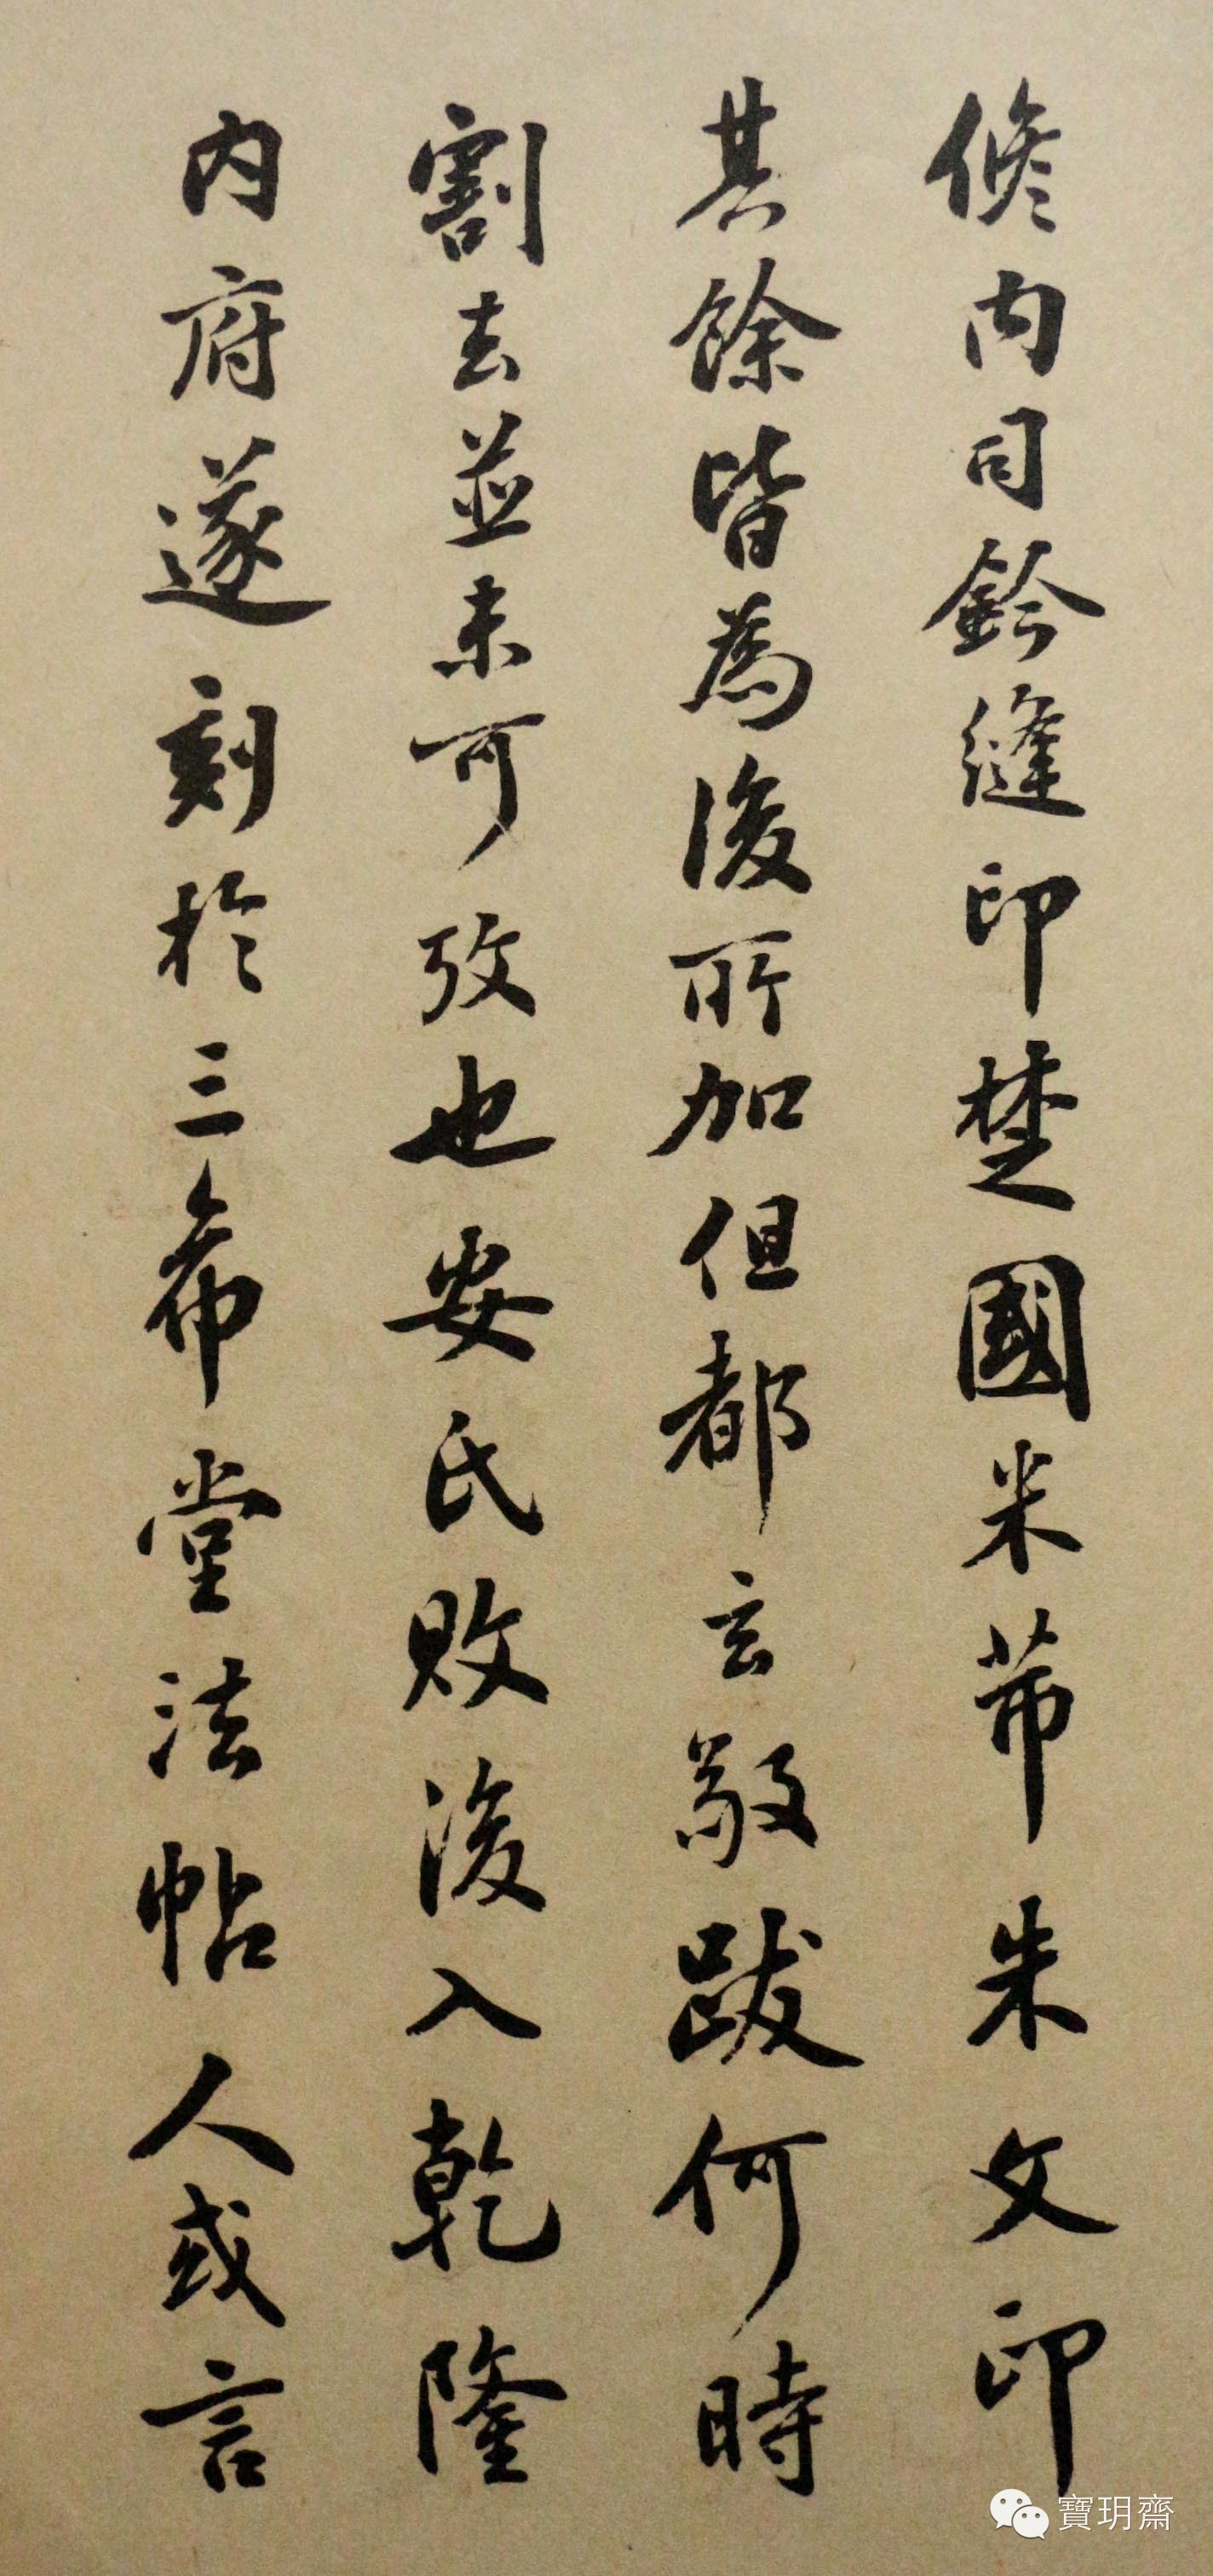 脩内司鈐縫印楚國米芾朱文印
其餘皆為後所加但都玄敬跋何時
割去並未可攷也安氏敗後入乾隆
内府遂刻於三希堂法帖人或言
寶玥齋